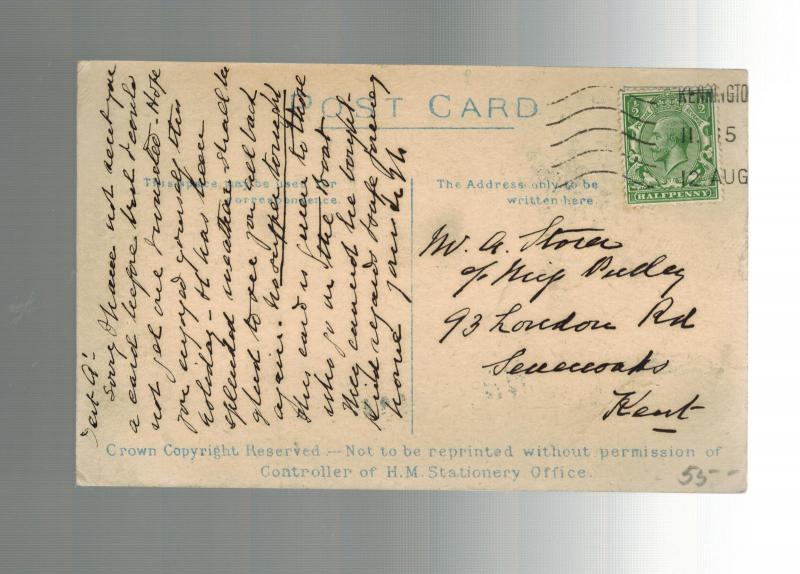 POST CARD
This space may be used for
correspondence.
The Address only to be
written here
KENNINGTO
11. 15
12 AUG
½ ½
HALFPENNY
Dear A'-
Sorry I have not sent you
a card before but I could
not get one I wanted - Hope
you enjoyed yourself this
holiday - It has been
splendid weather shall be
glad to see you all back
again. No supper tonight
This card is given to those
who go on the boat
They cannot be bought -
Kind regards hope
home
Mr. A. Storer
c/o Miss Pulley
93 London Rd
Sevenoaks
Kent
Crown Copyright Reserved - Not to be reprinted without permission of
Controller of H.M. Stationery Office.
55--